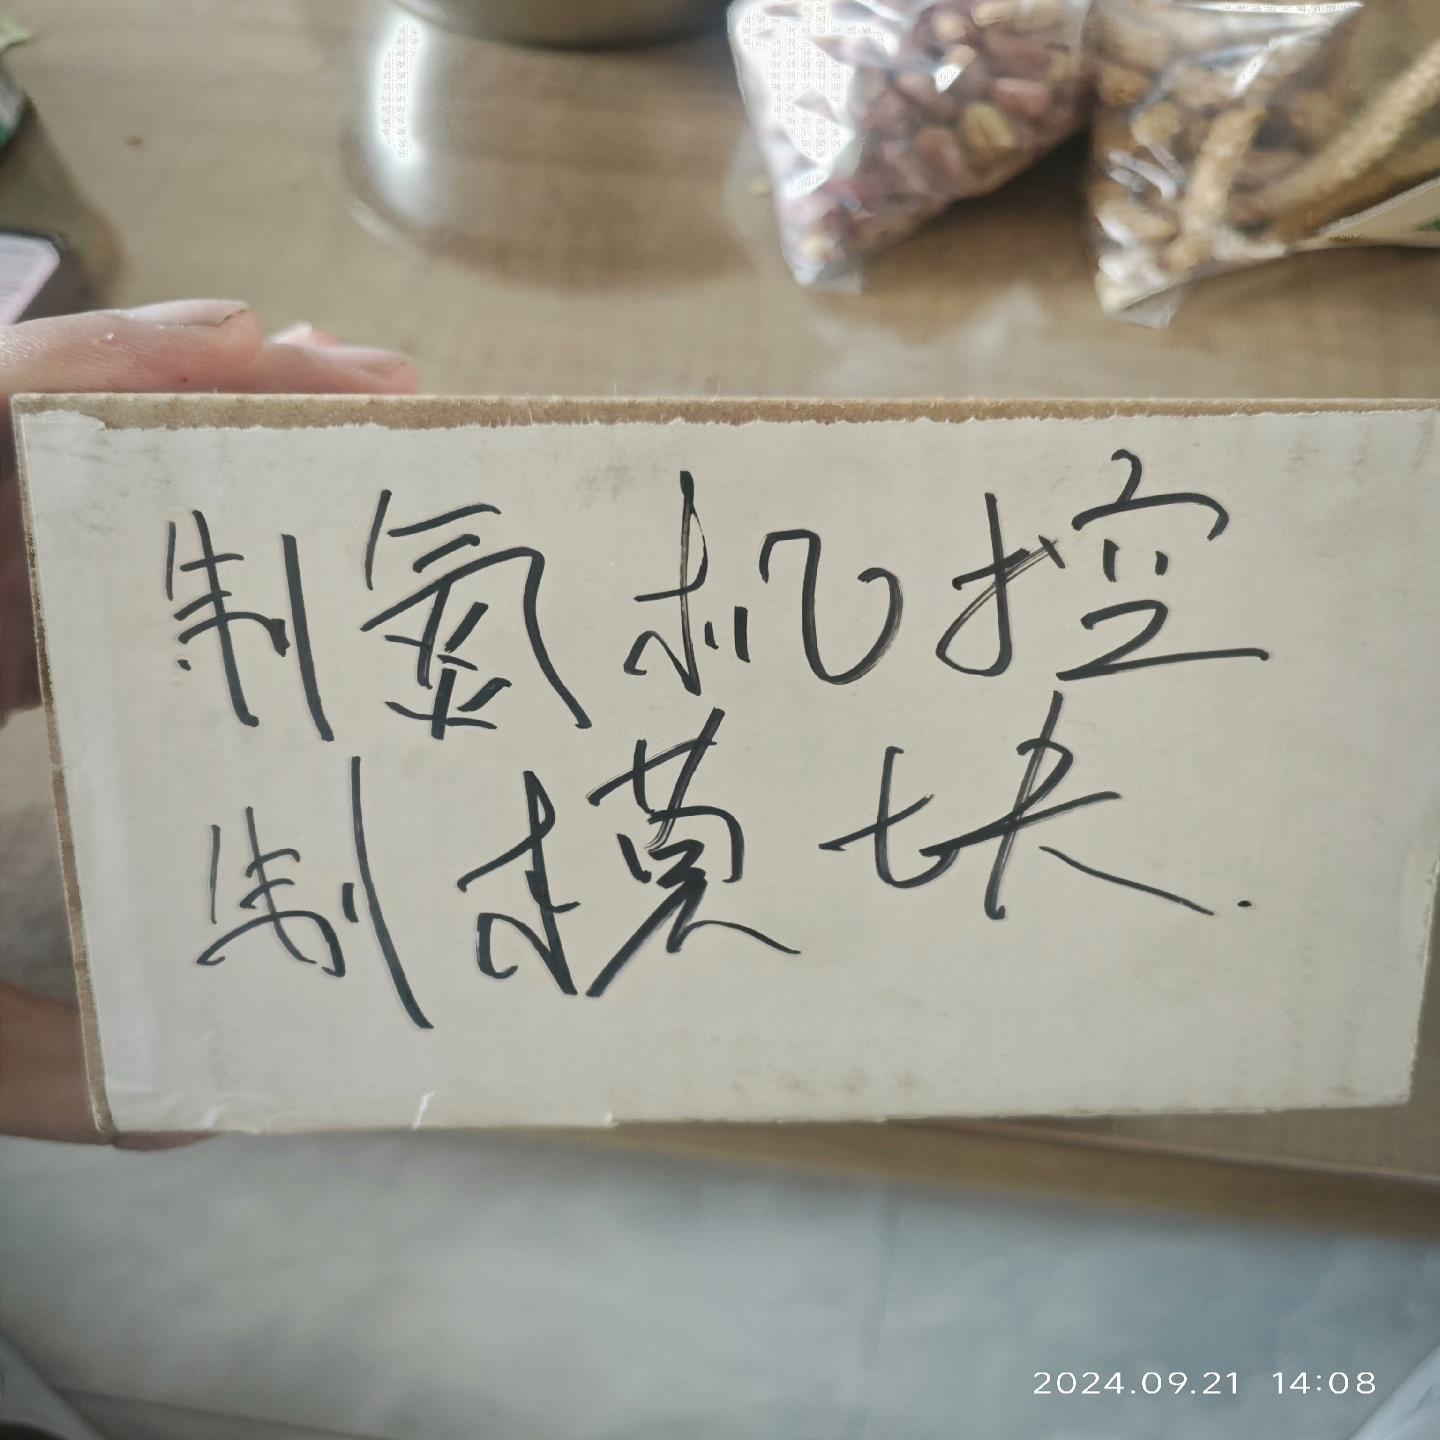 制氮机控
制模块.
2024.09.21 14:08